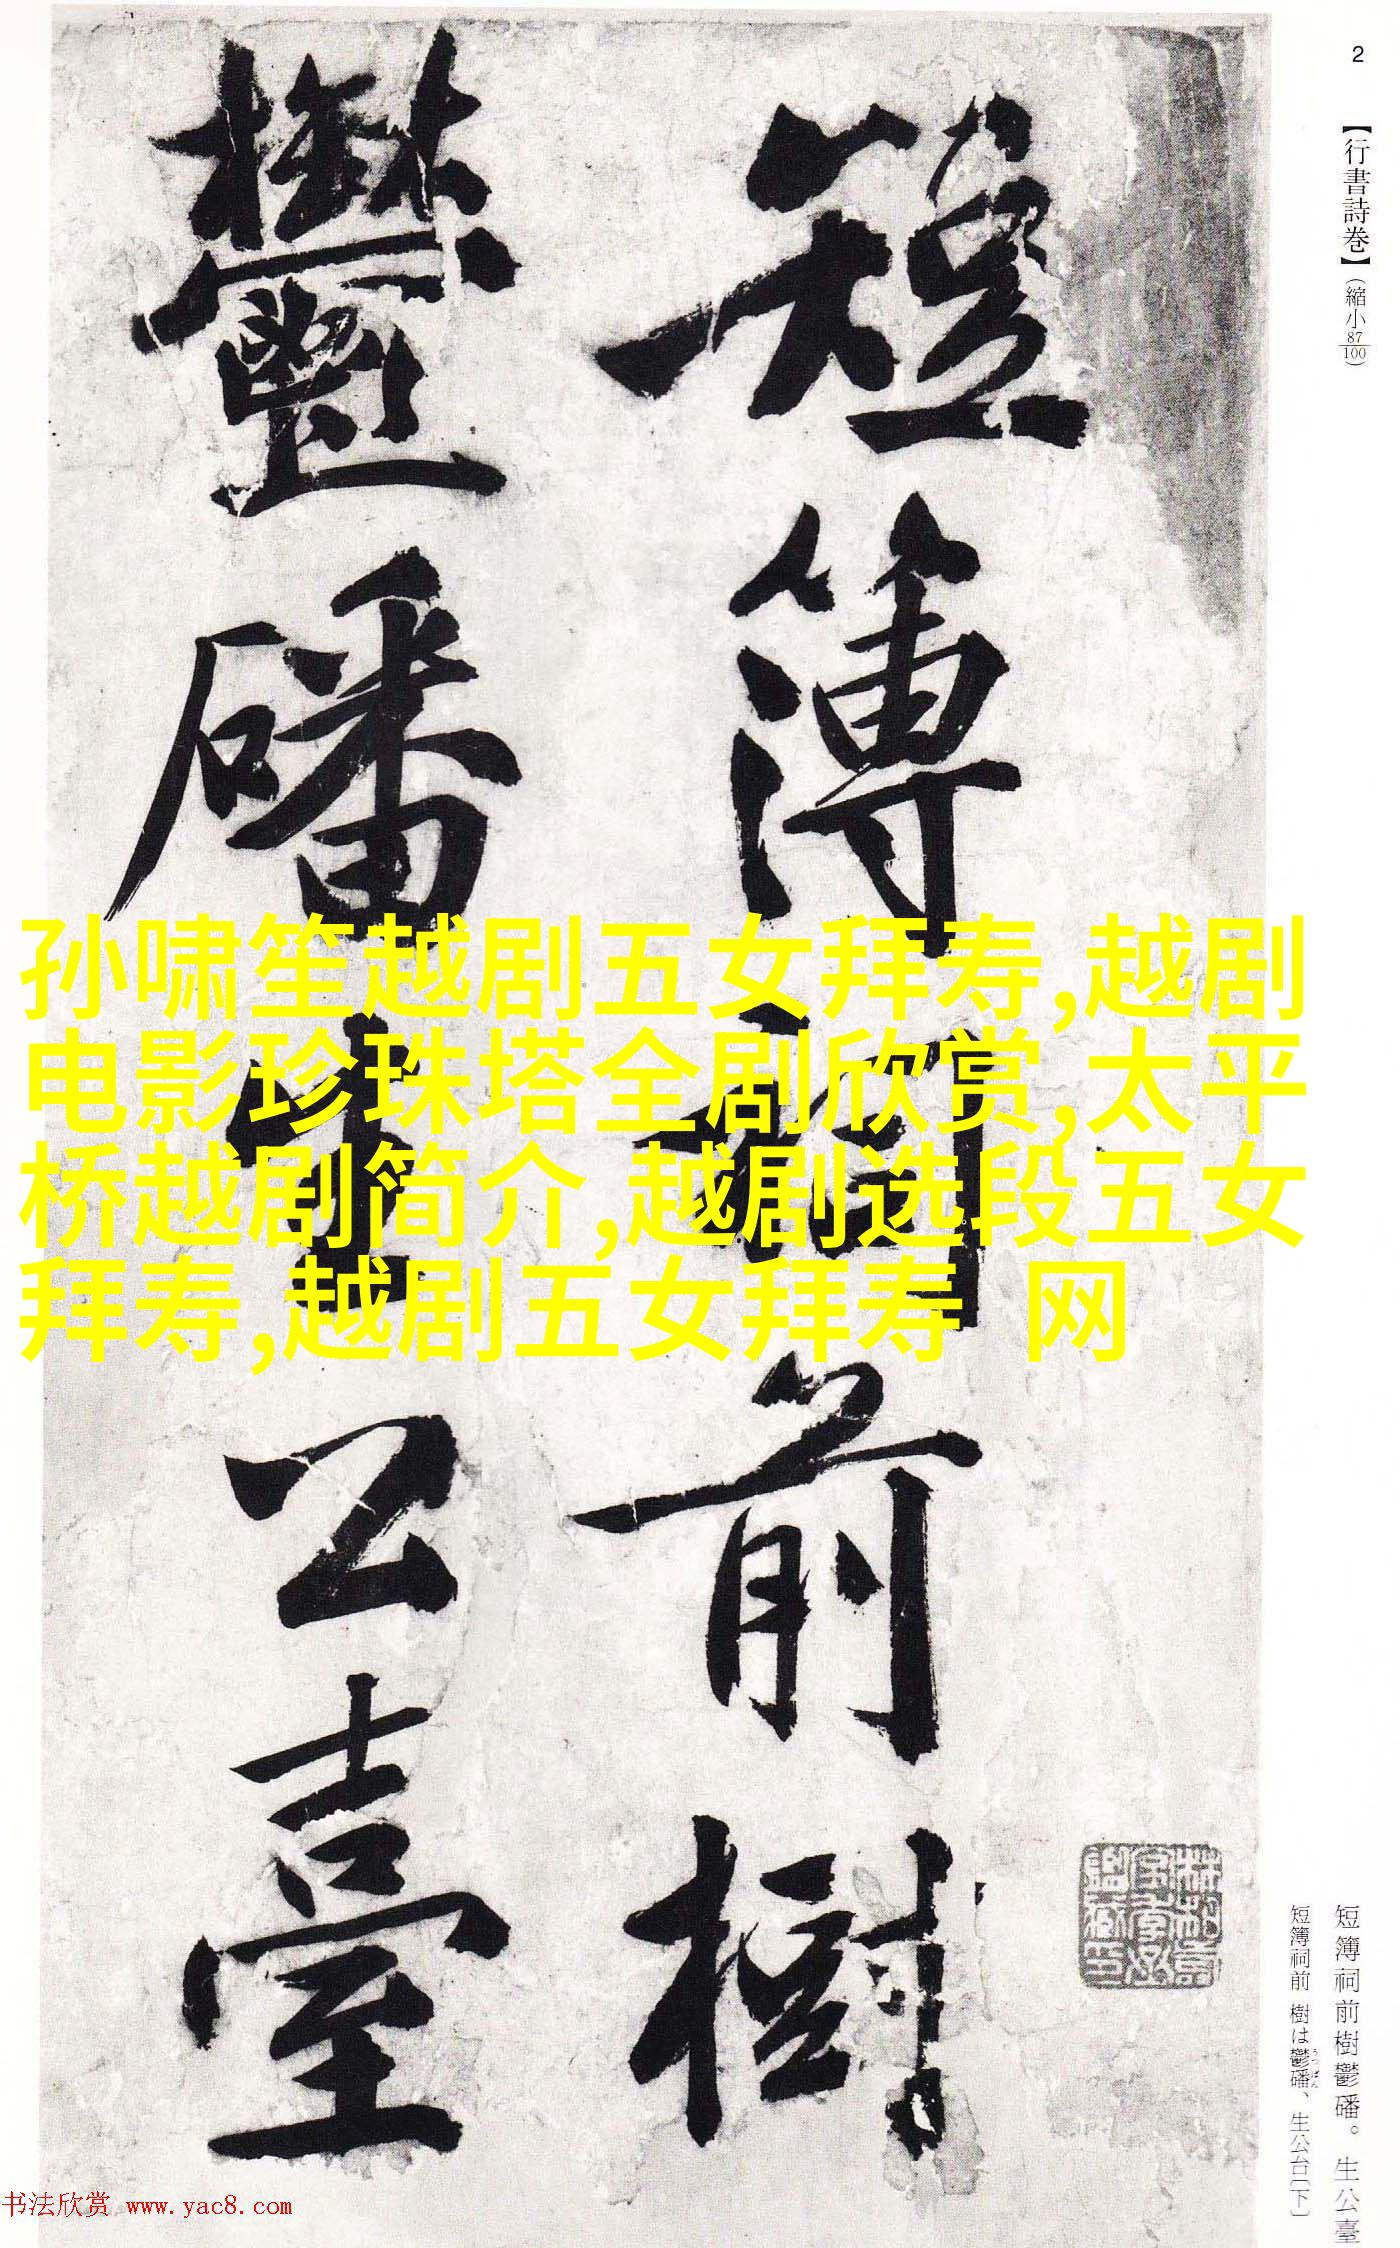 2
【行書詩巻】（縮小87/100）
短簿祠前樹
鬱磻生公臺
孙啸笙越剧五女拜寿,越剧
电影珍珠塔全剧欣赏,太平
桥越剧简介,越剧选段五女
拜寿,越剧五女拜寿 网
短簿祠前樹鬱磻。生公臺
短簿祠前 樹は鬱磻、生公台〔下〕
うつばん
书法欣赏 www.yac8.com